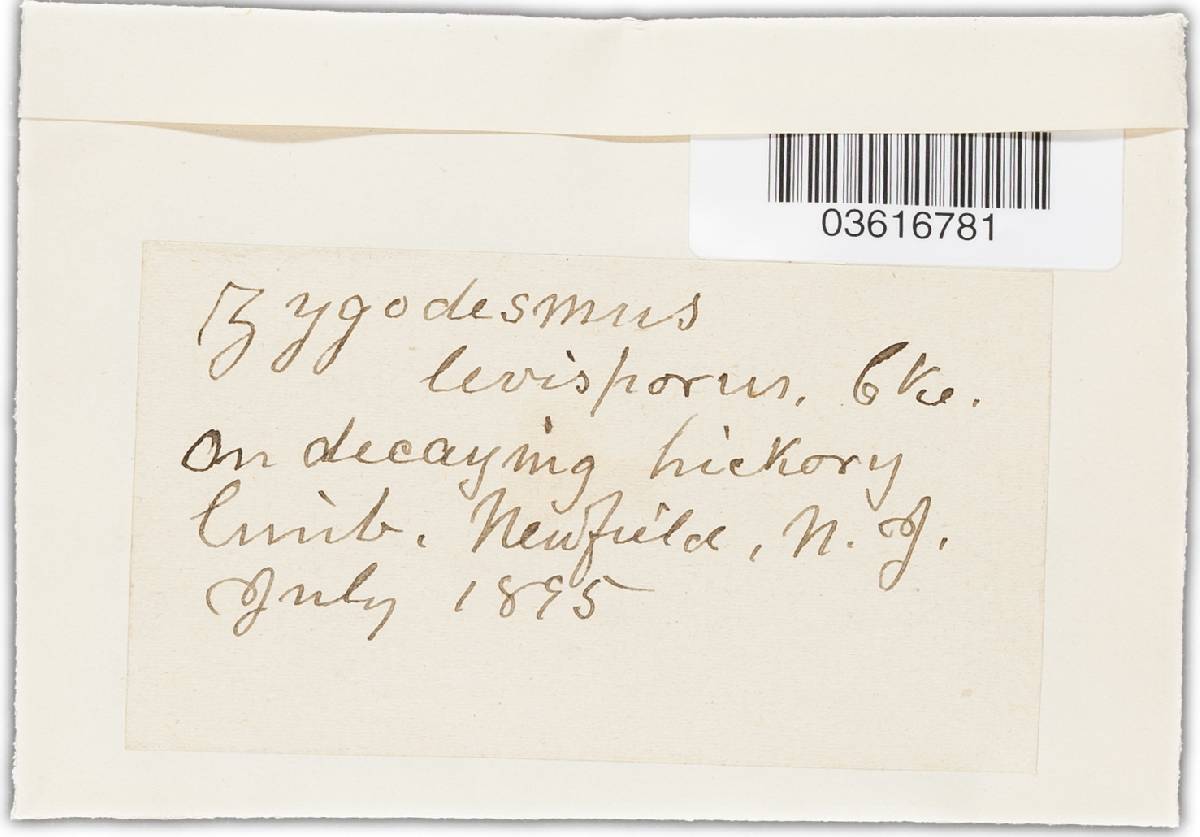 03616781
Zygodesmus
levisporus, Cke.
on decaying hickory
limb. Newfield, N. J.
July 1895